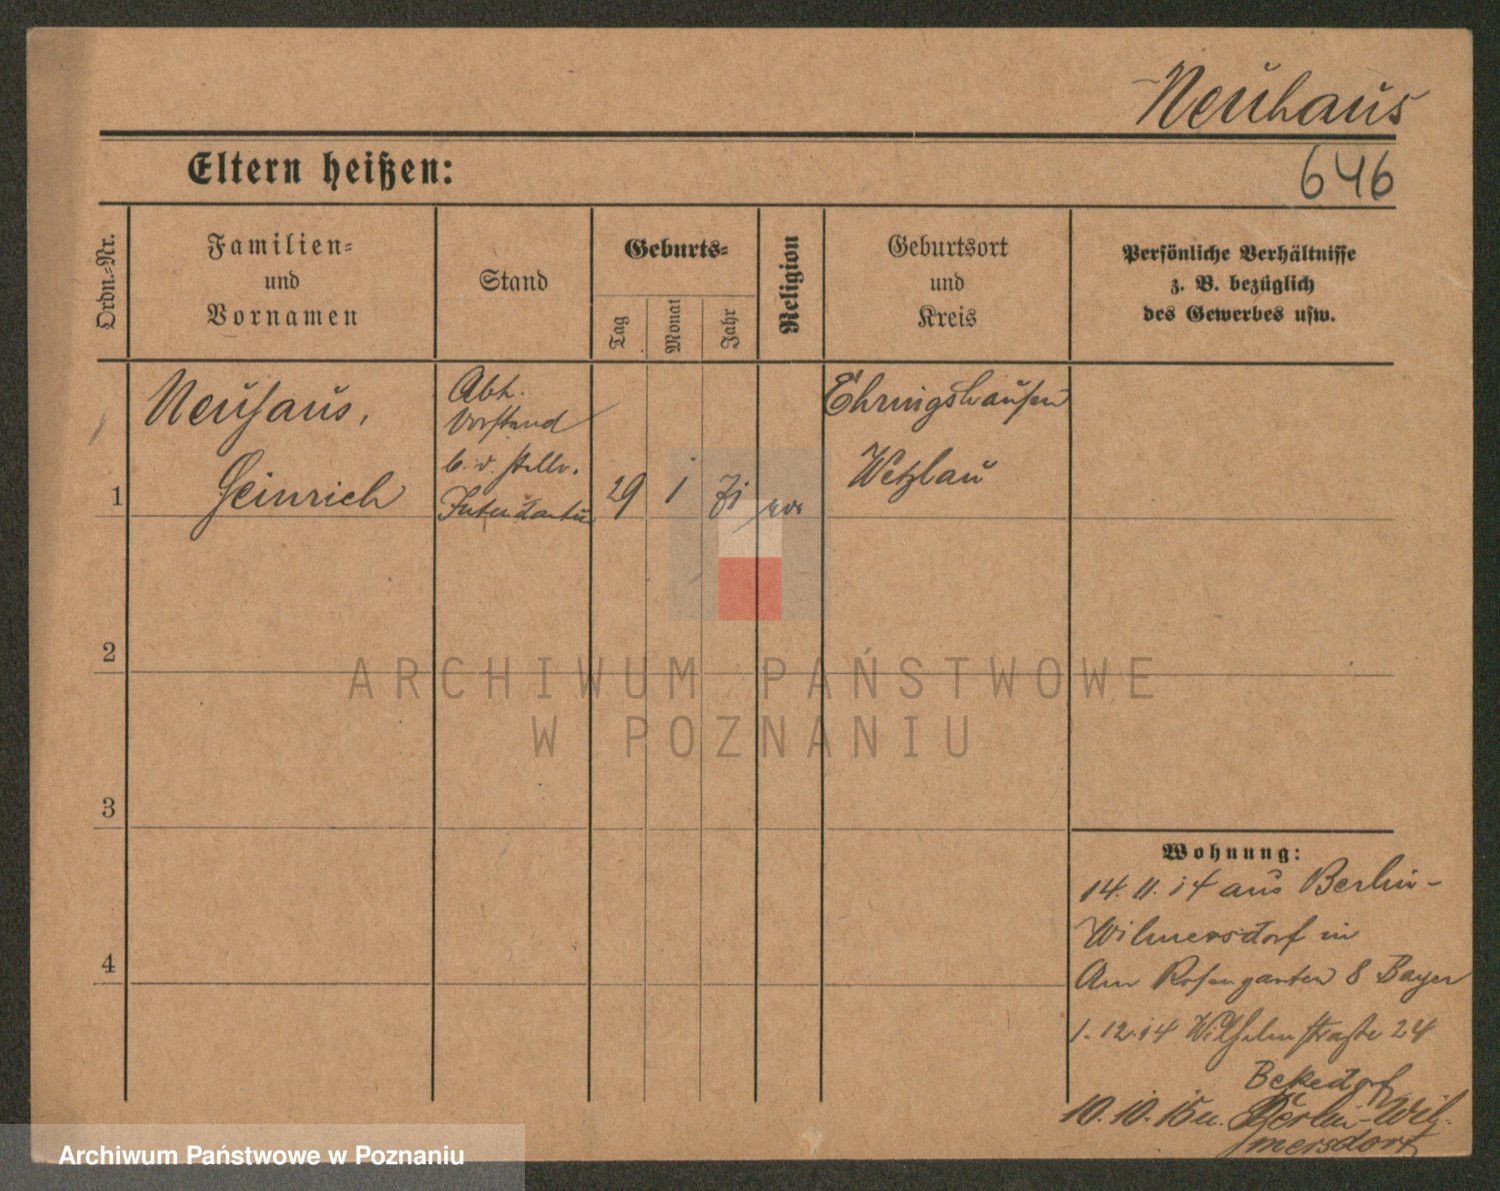 Neuhaus
Eltern heißen:
646
Ordn.-Nr.
Familien-
und
Vornamen
Stand
Geburts-
Tag
Monat
Jahr
Religion
Geburtsort
und
Kreis
Persönliche Verhältnisse
z. B. bezüglich
des Gewerbes usw.
1
Neuhaus,
Heinrich
Abt.
Vorstand
b. d. stellv.
Intendantur
29
1
71
Ehringshausen
Wetzlar
2
3
4
Wohnung:
14. 11. 14 aus Berlin-
Wilmersdorf in
Am Rosengarten 8 Bayer
1. 12. 14 Wilhelmstraße 24
10. 10. 15 n. Berlin-Wil-
mersdorf
ARCHIWUM PAŃSTWOWE
W POZNANIU
Archiwum Państwowe w Poznaniu